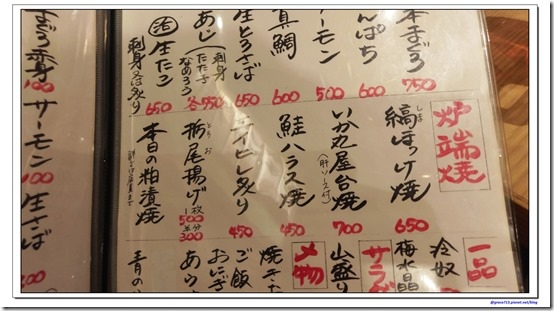 本まぐろ 750
んぱち 600
サーモン 500
真鯛 600
生とろさば 650
あじ(刺身 たたき なめろう) 各550
活 生たこ 650
刺身 各炙り
炉端焼
縞ほっけ焼 650
しま
いか丸屋台焼 700
(肝ソース付)
鮭ハラス焼 450
エイヒレ炙り 450
栃尾揚げ 1枚 500 半分 300
とちお
本日の粕漬焼
一品
冷奴
梅水晶
サラダ
山盛り
〆物
焼き
ご飯
おにぎ
あら
青の
身 100
サーモン 100
生さば
@grace713.pixnet.net/blog